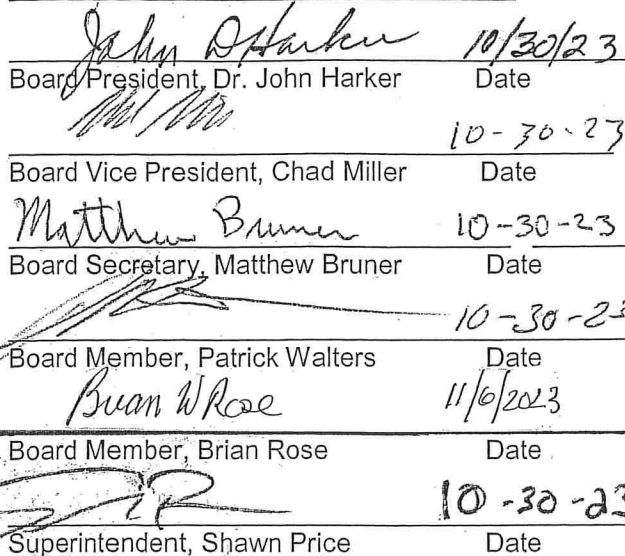 John D Harker 10/30/23
Board President, Dr. John Harker Date
10-30-23
Board Vice President, Chad Miller Date
Matthew Bruner 10-30-23
Board Secretary, Matthew Bruner Date
10-30-23
Board Member, Patrick Walters Date
Brian W Rose 11/6/2023
Board Member, Brian Rose Date
10-30-23
Superintendent, Shawn Price Date